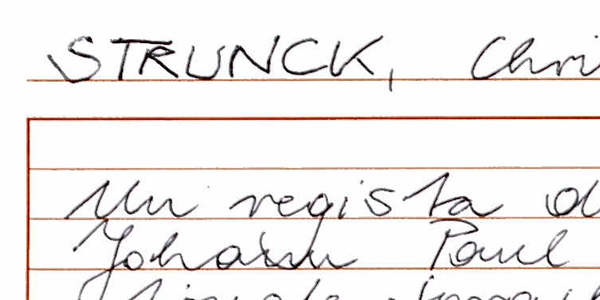 STRUNCK, Chri
Un regista d
Johann Paul